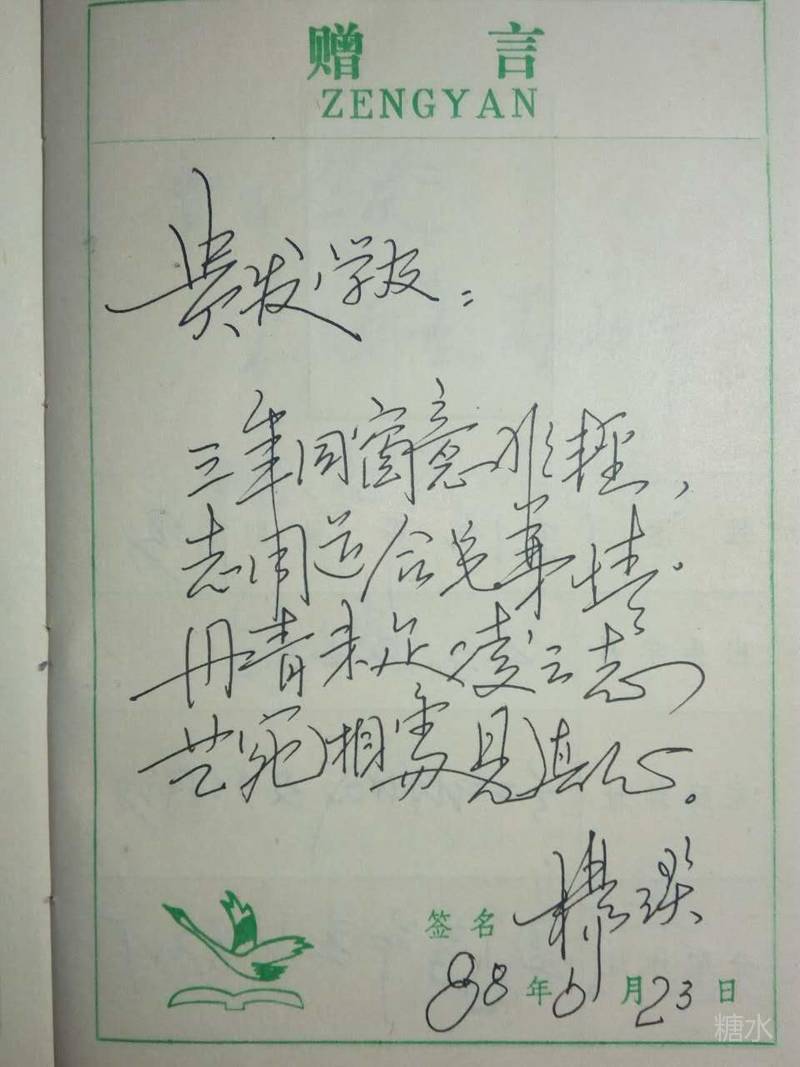 赠 言
ZENGYAN
贵发学友：
三年同窗意难轻，
志同道合兄弟情。
丹青未足凌云志
艺苑相处见真心。
签名
88年6月23日
糖水